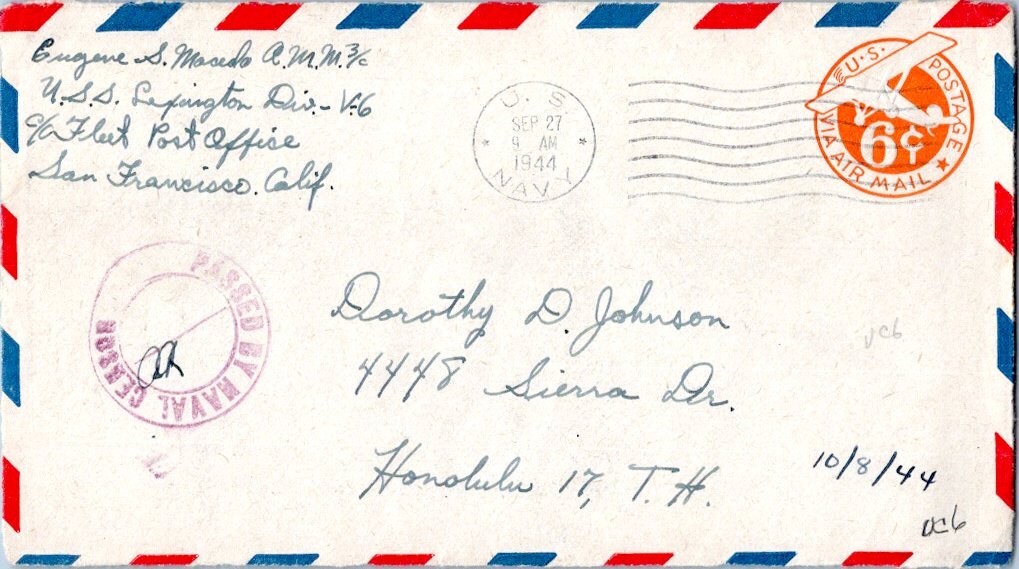 Eugene S. Macedo A.M.M. 3/c
U.S.S. Lexington Div.- V-6
c/o Fleet Post Office
San Francisco. Calif.
U. S.
SEP 27
9 AM
1944
NAVY
U.S. POSTAGE
6¢
VIA AIR MAIL
PASSED BY NAVAL CENSOR
Dorothy D. Johnson
4448 Sierra Dr.
Honolulu 17, T. H.
UC6
10/8/44
UC6